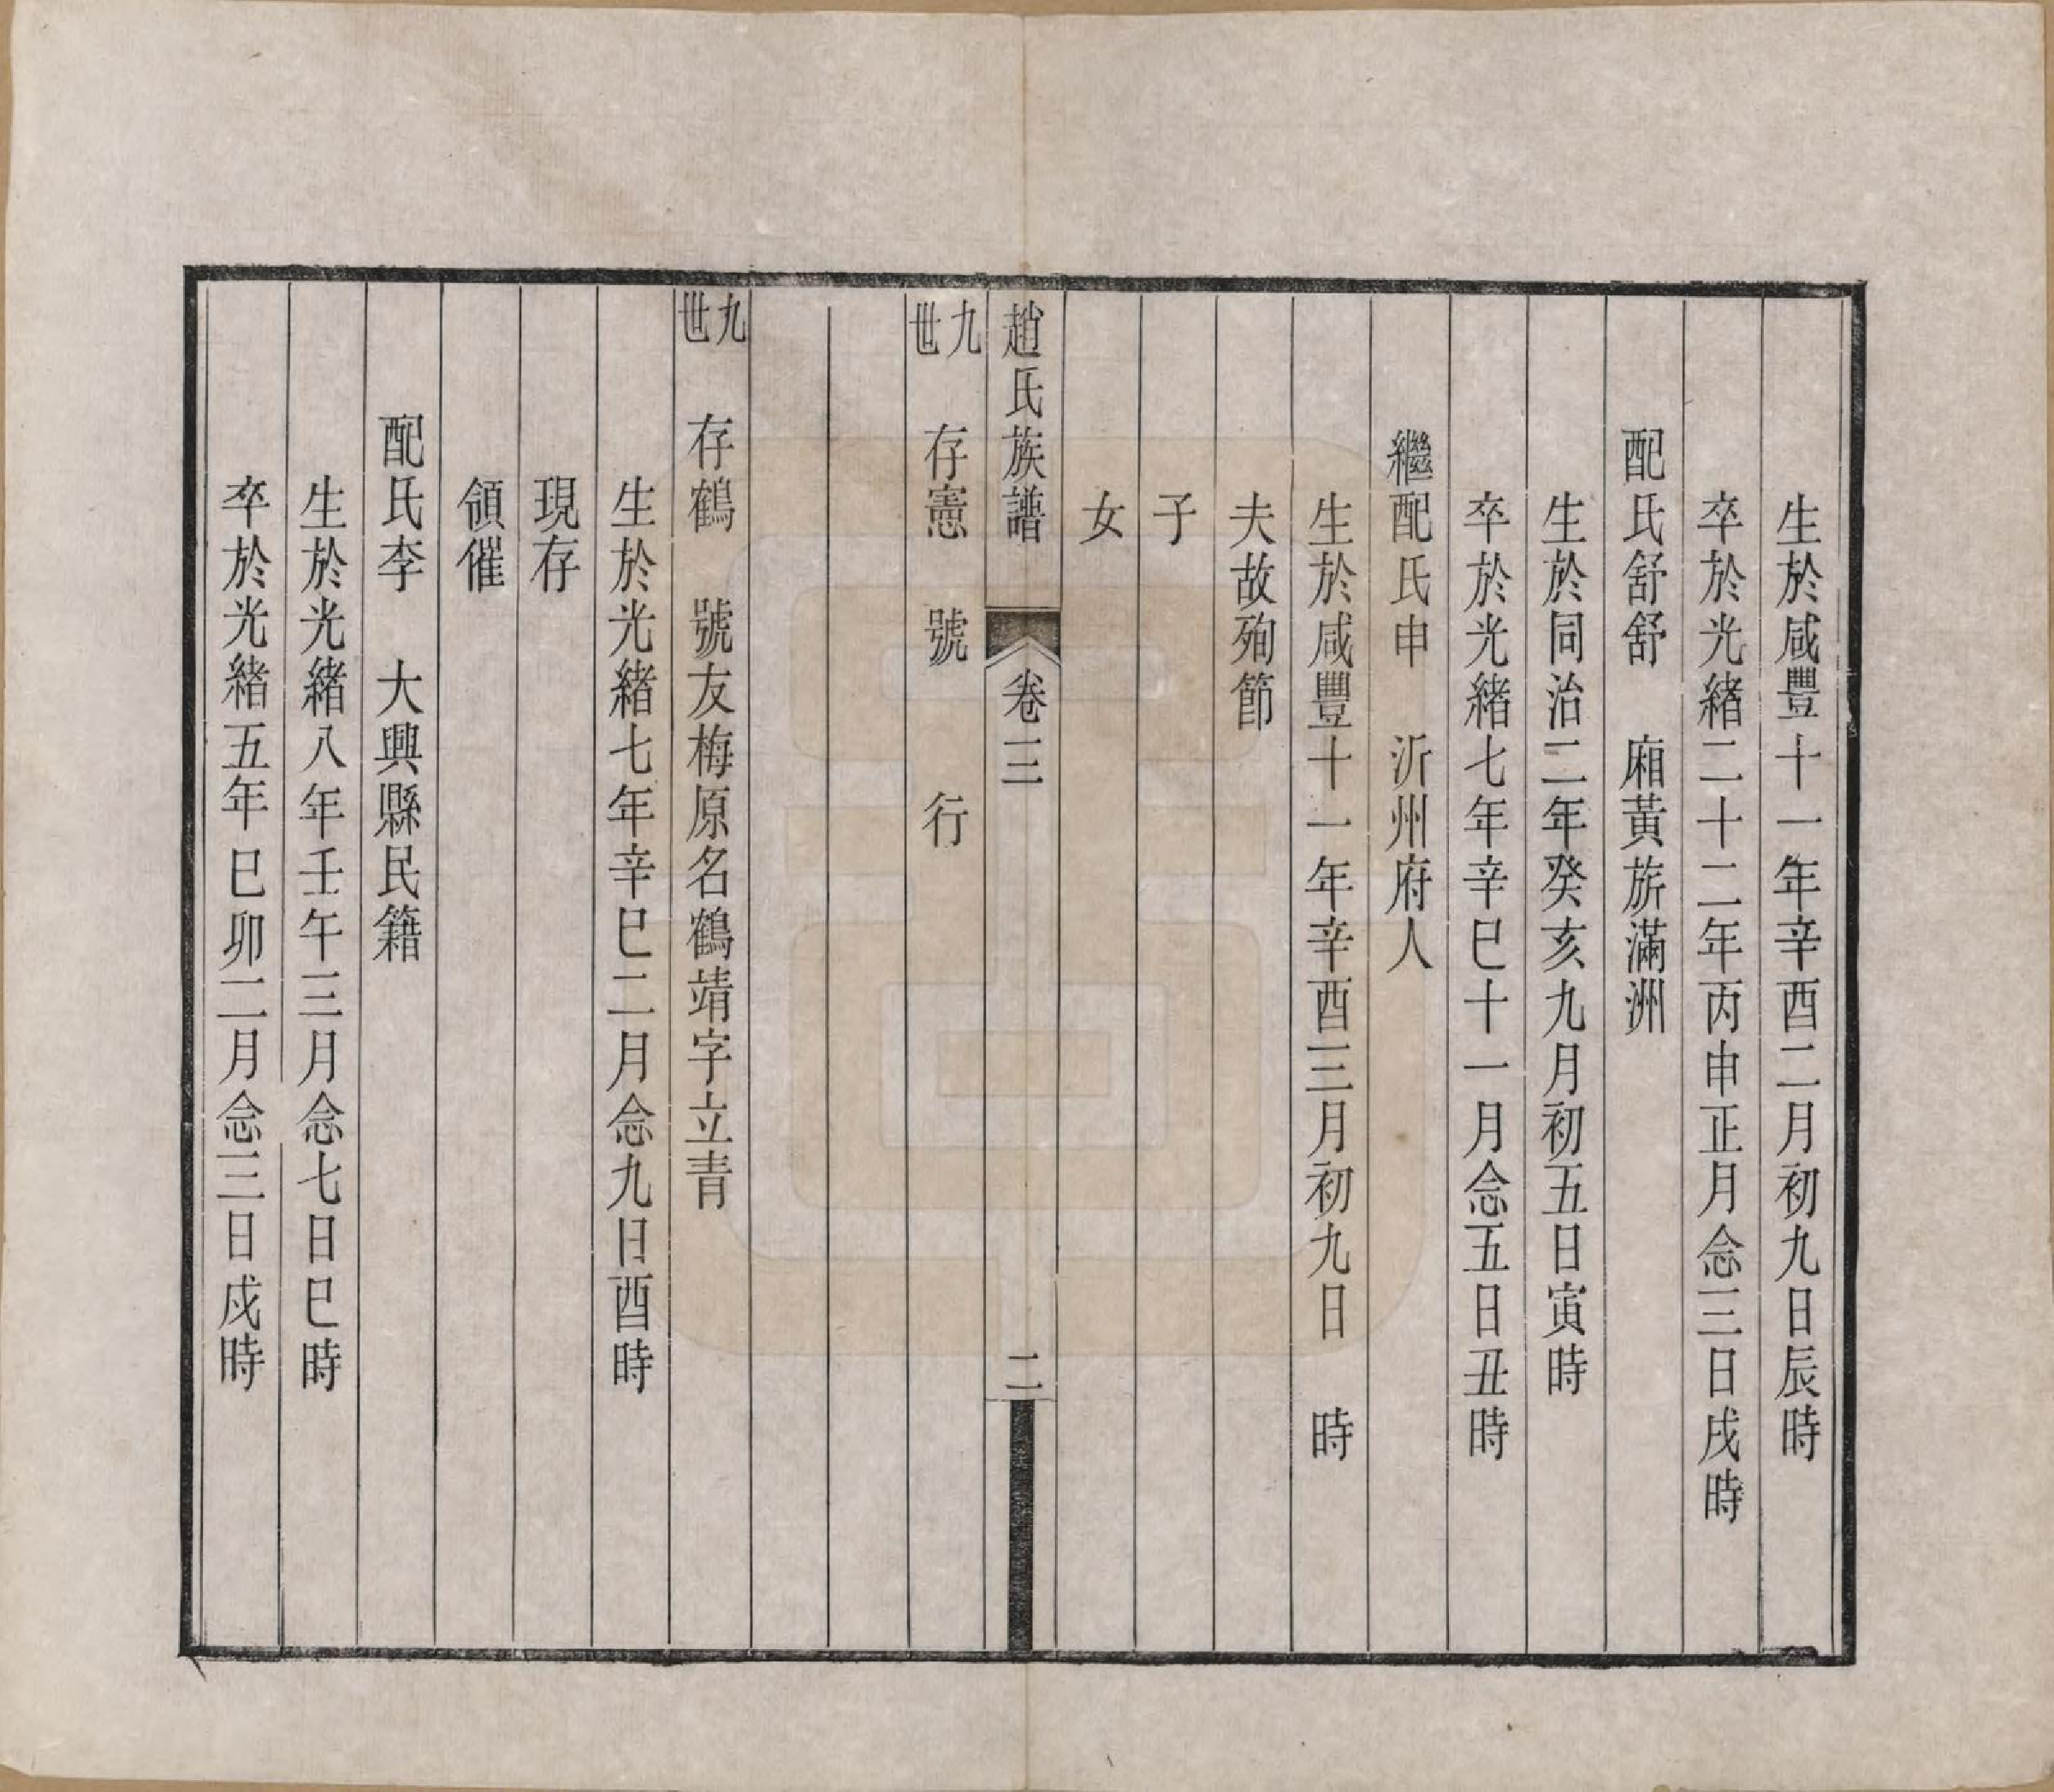 生於咸豐十一年辛酉二月初九日辰時
卒於光緒二十二年丙申正月念三日戌時
配氏舒舒　廂黃旂滿洲
生於同治二年癸亥九月初五日寅時
卒於光緒七年辛巳十一月念五日丑時
繼配氏申　沂州府人
生於咸豐十一年辛酉三月初九日　時
夫故殉節
子
女
趙氏族譜　卷三　二
九世　存憲　號　　行
九世　存鶴　號友梅原名鶴靖字立青
生於光緒七年辛巳二月念九日酉時
現存
領催
配氏李　大興縣民籍
生於光緒八年壬午三月念七日巳時
卒於光緒五年巳卯二月念三日戌時